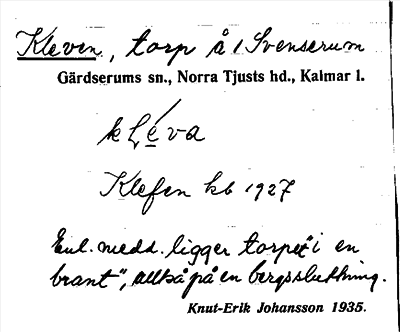 Kleven, torp å / Svenserum
Gärdserums sn., Norra Tjusts hd., Kalmar l.
kléva
Klefen kb 1927
Enl. medd. ligger torpet "i en
brant", alltså på en bergssluttning.
Knut-Erik Johansson 1935.